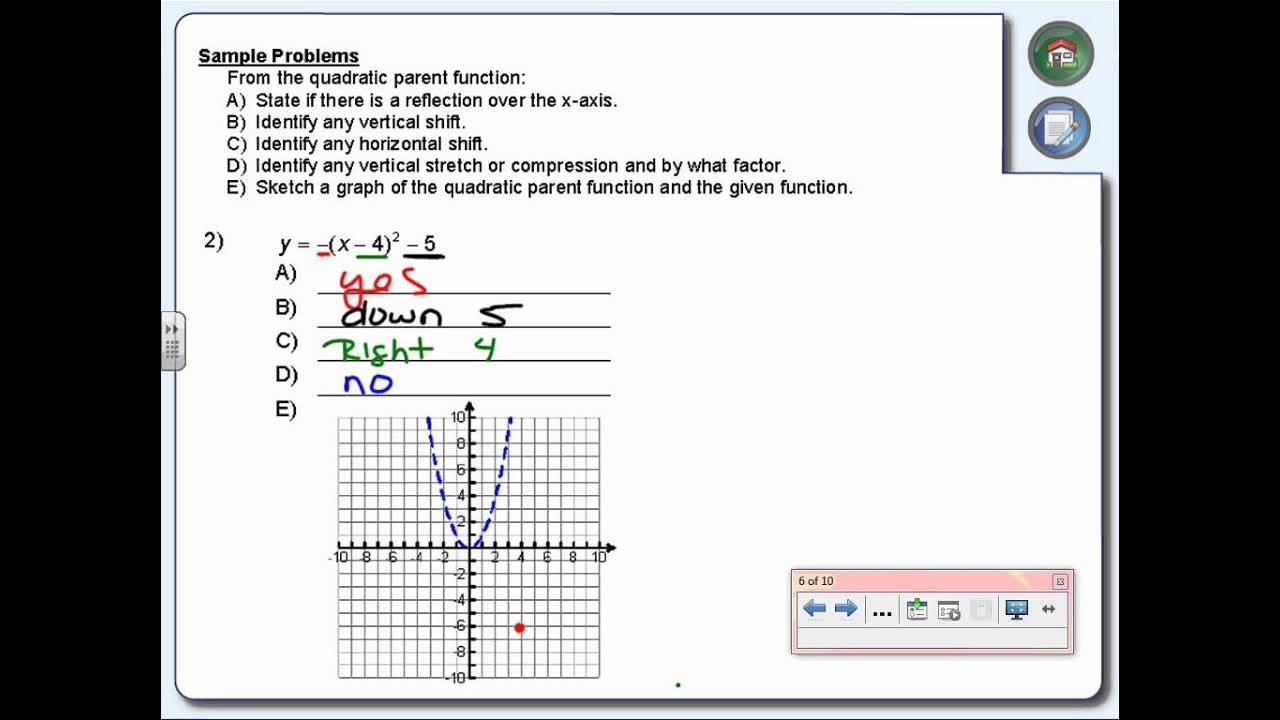 Sample Problems
From the quadratic parent function:
A) State if there is a reflection over the x-axis.
B) Identify any vertical shift.
C) Identify any horizontal shift.
D) Identify any vertical stretch or compression and by what factor.
E) Sketch a graph of the quadratic parent function and the given function.
2) y = –(x – 4)² – 5
A) yes
B) down 5
C) Right 4
D) no
E)
10
8
6
4
2
-10 -8 -6 -4 -2 2 4 6 8 10
-2
-4
-6
-8
-10
6 of 10